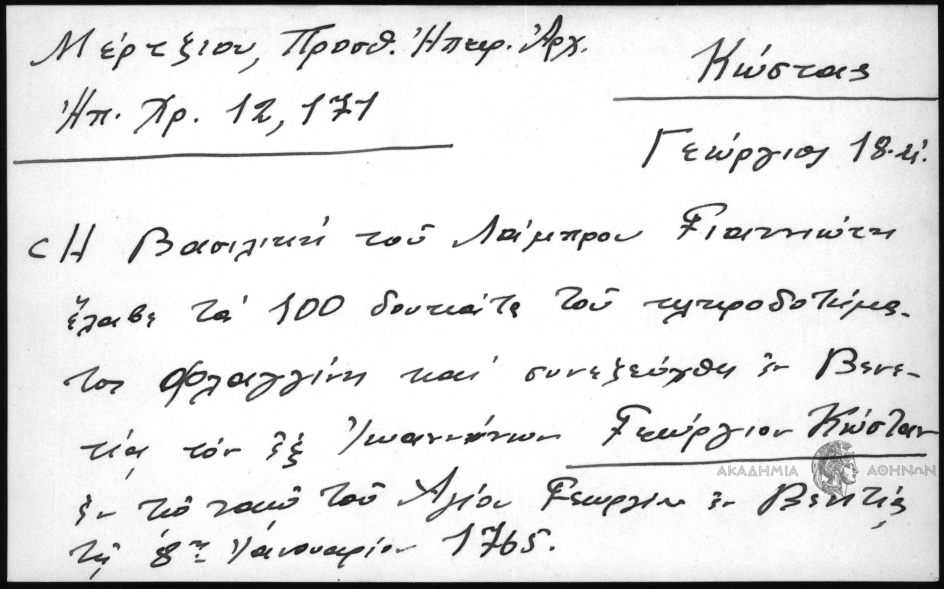 Μέρτζιου, Προσθ. Ἠπειρ. Ἀρχ.
Ἠπ. Χρ. 12, 171
Κώστας
Γεώργιος 18. αἰ.
Ἡ Βασιλική τοῦ Λάμπρου Γιαννιώτη
ἔλαβε τά 100 δουκάτα τοῦ κληροδοτήμα-
τος Φλαγγίνη καί συνεζεύχθη ἐν Βενε-
τίᾳ τόν ἐξ Ἰωαννίνων Γεώργιον Κώσταν
ἐν τῷ ναῷ τοῦ Ἁγίου Γεωργίου ἐν Βενετίᾳ
τῇ 8ῃ Ἰανουαρίου 1765.
ΑΚΑΔΗΜΙΑ ΑΘΗΝΩΝ